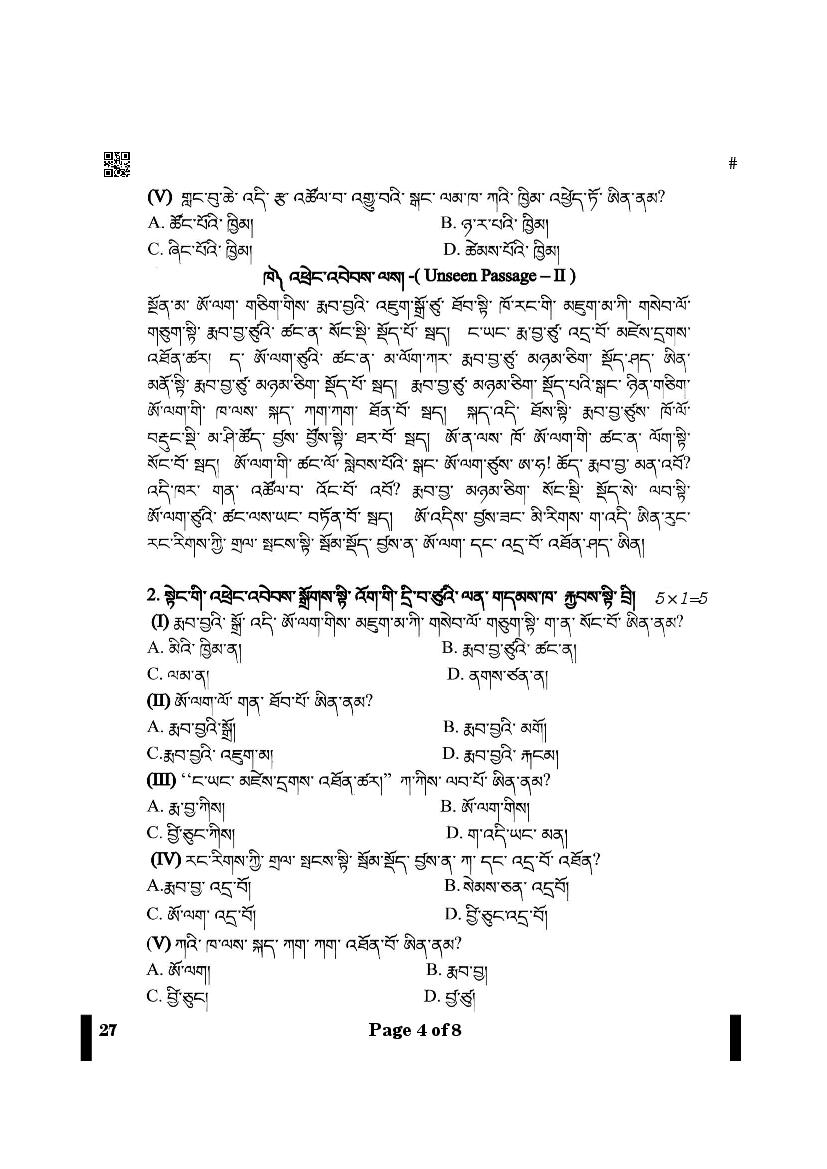 #
(V) གླང་བུ་ཆེ་ འདི་ རྩྭ་ འཚོལ་བ་ འགྱུ་བའི་ སྒང་ ལམ་ཁ་ ཀའི་ ཁྱིམ་ འཕྲེད་ཏོ་ ཨིན་ནམ?
A. ཚོང་པོའི་ ཁྱིམ།
B. ཉ་ར་པའི་ ཁྱིམ།
C. ཞིང་པོའི་ ཁྱིམ།
D. ཚེམས་པོའི་ ཁྱིམ།
ཁ༽ འཕྲེང་འབེབས་ ལས། -( Unseen Passage – II )
སྔོན་མ་ ཨོ་ལག་ གཅིག་གིས་ རྨབ་བྱའི་ འཇུག་སྒྲོ་ཙུ་ ཐོབ་སྟི་ ཁོ་རང་གི་ མཇུག་མ་ཀི་ གསེབ་ལོ་
གཅུག་སྟི་ རྨབ་བྱ་ཙུའི་ ཚང་ན་ སོང་སྡི་ སྡོད་པོ་ སྦད། ང་ཡང་ རྨ་བྱ་ཙུ་ འདྲ་བོ་ མཛེས་དྲགས་
འཐོན་ཚར། ད་ ཨོ་ལག་ཙུའི་ ཚང་ན་ མ་ལོག་ཀར་ རྨབ་བྱ་ཙུ་ མཉམ་ཅིག་ སྡོད་ཤད་ ཨིན་
མནོ་སྟི་ རྨབ་བྱ་ཙུ་ མཉམ་ཅིག་ སྡོད་པོ་ སྦད། རྨབ་བྱ་ཙུ་ མཉམ་ཅིག་ སྡོད་པའི་སྒང་ ཉིན་གཅིག་
ཨོ་ལག་གི་ ཁ་ལས་ སྐད་ ཀག་ཀག་ ཐོན་བོ་ སྦད། སྐད་འདི་ ཐོས་སྟི་ རྨབ་བྱ་ཙུས་ ཁོ་ལོ་
བརྡུང་སྡི་ མ་ཤི་ཚོད་ བྱས་ བྱོས་སྟི་ ཐར་བོ་ སྦད། ཨོ་ན་ལས་ ཁོ་ ཨོ་ལག་གི་ ཚང་ན་ ལོག་སྟི་
སོང་བོ་ སྦད། ཨོ་ལག་གི་ ཚང་ལོ་ སླེབས་པོའི་ སྒང་ ཨོ་ལག་ཙུས་ ཨ་ཧ! ཚོད་ རྨབ་བྱ་ མན་འབོ?
འདི་ཁར་ གན་ འཚོལ་བ་ འོང་བོ་ འབོ? རྨབ་བྱ་ མཉམ་ཅིག་ སོང་སྡི་ སྡོད་སེ་ ལབ་སྟི་
ཨོ་ལག་ཙུའི་ ཚང་ལས་ཡང་ བཏོན་བོ་ སྦད། ཨོ་འདིས་ བྱས་ཟང་ མི་རིགས་ ག་འདི་ ཨིན་རུང་
རང་རིགས་ཀྱི་ གྲལ་ སྤངས་སྟི་ སྡོམ་སྡོད་ བྱས་ན་ ཨོ་ལག་ དང་ འདྲ་བོ་ འཐོན་ཤད་ ཨིན།
2. སྟེང་གི་ འཕྲེང་འབེབས་ སྒྲོགས་སྟི་ འོག་གི་ དྲི་བ་ཙུའི་ ལན་ གདམས་ཁ་ རྐྱབས་སྟི་ བྲི། 5×1=5
(I) རྨབ་བྱའི་ སྒྲོ་ འདི་ ཨོ་ལག་གིས་ མཇུག་མ་ཀི་ གསེབ་ལོ་ གཅུག་སྟི་ ག་ན་ སོང་བོ་ ཨིན་ནམ?
A. མིའི་ ཁྱིམ་ན།
B. རྨབ་བྱ་ཙུའི་ ཚང་ན།
C. ལམ་ན།
D. ནགས་ཙན་ན།
(II) ཨོ་ལག་ལོ་ གན་ ཐོབ་པོ་ ཨིན་ནམ?
A. རྨབ་བྱའི་སྒྲོ།
B. རྨབ་བྱའི་ མགོ།
C.རྨབ་བྱའི་ འཇུག་མ།
D. རྨབ་བྱའི་ རྐངམ།
(III) “ང་ཡང་ མཛེས་དྲགས་ འཐོན་ཚར།” ཀ་ཀིས་ ལབ་པོ་ ཨིན་ནམ?
A. རྨ་བྱ་ཀིས།
B. ཨོ་ལག་གིས།
C. བྱི་ཅུང་ཀིས།
D. ག་འདི་ཡང་ མན།
(IV) རང་རིགས་ཀྱི་ གྲལ་ སྤངས་སྟི་ སྡོམ་སྡོད་ བྱས་ན་ ཀ་ དང་ འདྲ་བོ་ འཐོན?
A.རྨབ་བྱ་ འདྲ་བོ།
B. སེམས་ཅན་ འདྲ་བོ།
C. ཨོ་ལག་ འདྲ་བོ།
D. བྱི་ཅུང་འདྲ་བོ།
(V) ཀའི་ ཁ་ལས་ སྐད་ ཀག་ ཀག་ འཐོན་བོ་ ཨིན་ནམ?
A. ཨོ་ལག།
B. རྨབ་བྱ།
C. བྱི་ཅུང།
D. བྱ་ཙུ།
27
Page 4 of 8